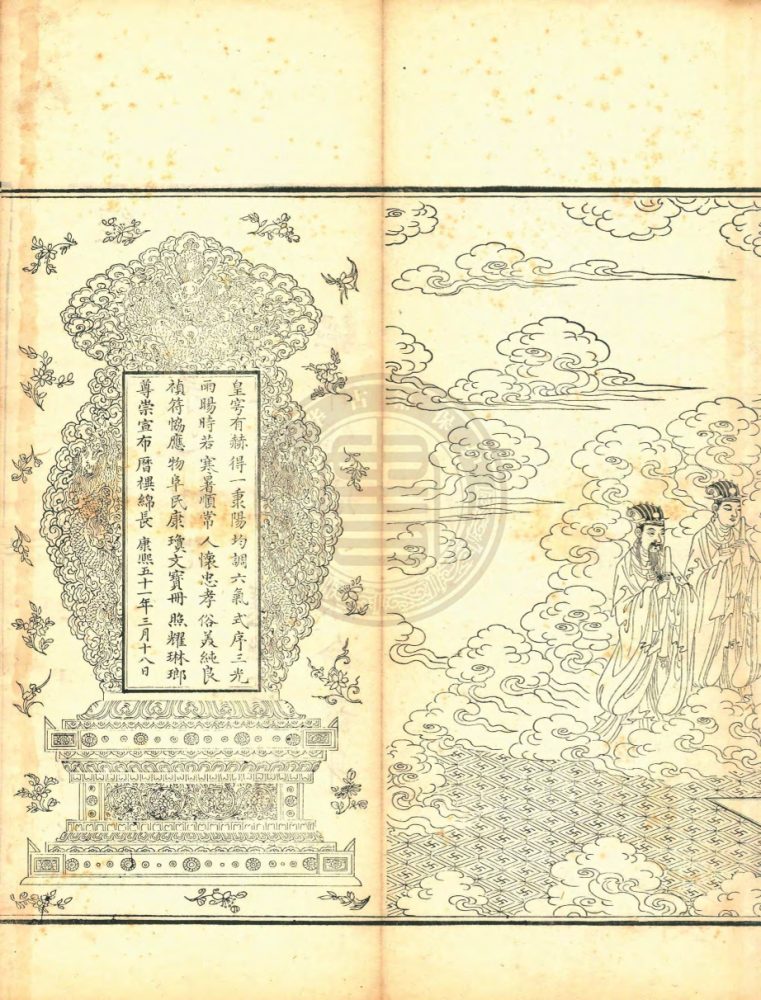 皇穹有赫得一秉陽均調六氣式序三光
雨暘時若寒暑順常人懷忠孝俗美純良
禎符懋應物阜民康瓊文寶冊照耀琳瑯
尊崇宣布曆禩綿長康熙五十一年三月十八日